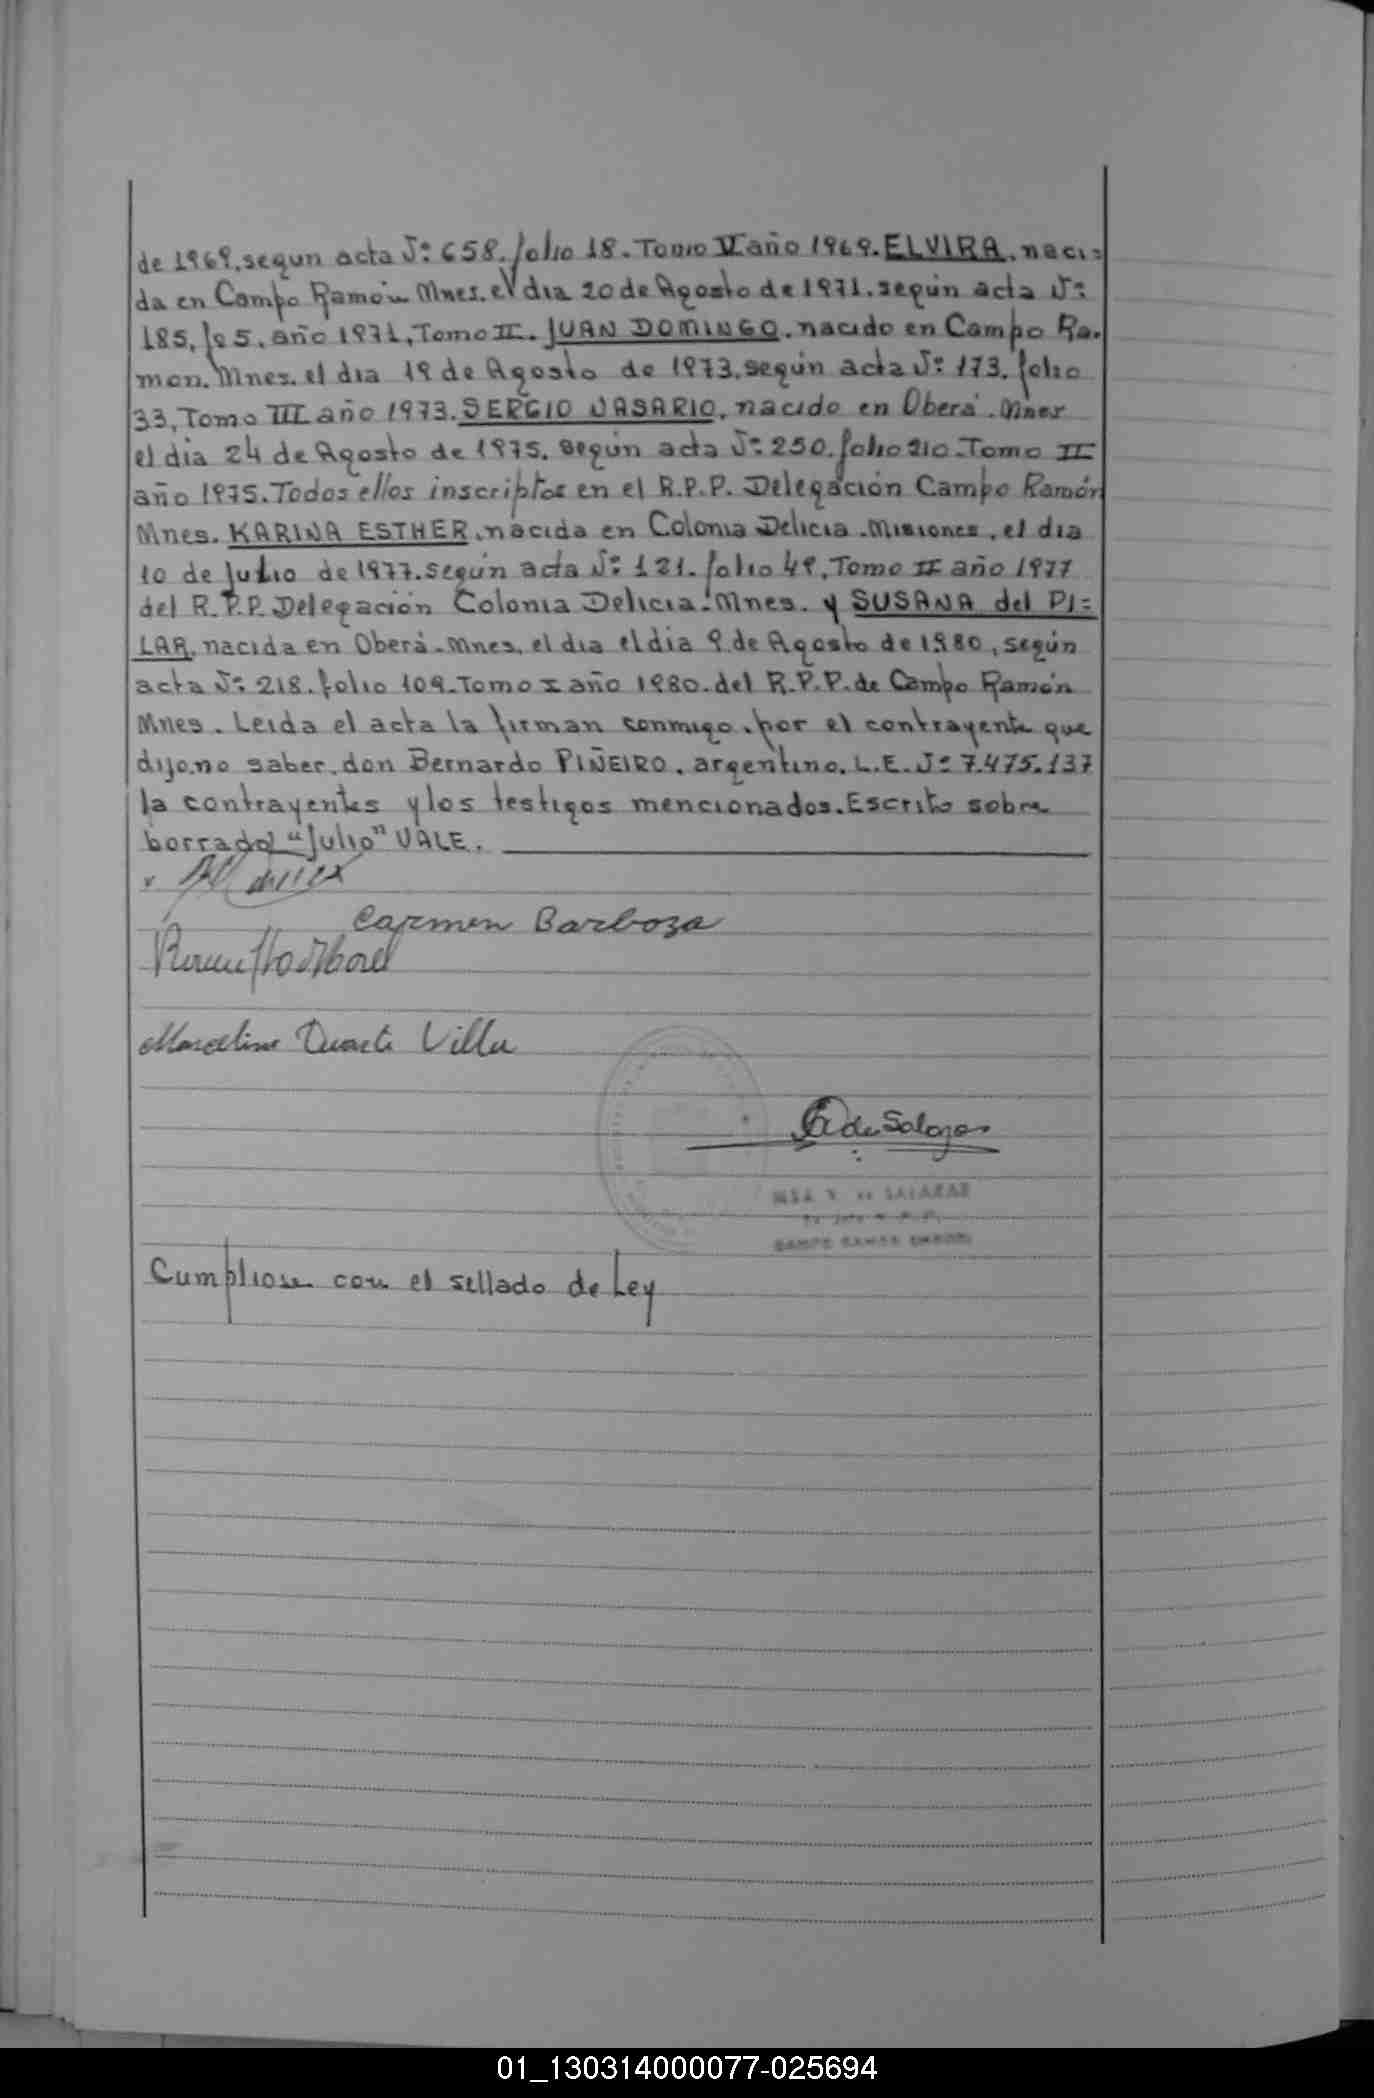 de 1969, segun acta Nº 658. folio 18. Tomo IV año 1969. ELVIRA, naci=
da en Campo Ramón Mnes. el dia 20 de Agosto de 1971. según acta Nº
185, fº 5, año 1971, Tomo II. JUAN DOMINGO. nacido en Campo Ra.
mon. Mnes. el dia 19 de Agosto de 1973. según acta Nº 173. folio
33, Tomo III año 1973. SERGIO NASARIO, nacido en Oberá. Mnes
el dia 24 de Agosto de 1975. según acta Nº 250. folio 210. Tomo II
año 1975. Todos ellos inscriptos en el R.P.P. Delegación Campo Ramón
Mnes. KARINA ESTHER, nacida en Colonia Delicia. Misiones, el dia
10 de Julio de 1977. según acta Nº 121. folio 49, Tomo II año 1977
del R.P.P. Delegación Colonia Delicia. Mnes. y SUSANA del PI=
LAR, nacida en Oberá. Mnes, el dia el dia 9 de Agosto de 1980, según
acta Nº 218. folio 109. Tomo I año 1980. del R.P.P. de Campo Ramón
Mnes. Leida el acta la firman conmigo, por el contrayente que
dijo no saber, don Bernardo PIÑEIRO, argentino, L.E. Nº 7.475.137
la contrayentes y los testigos mencionados. Escrito sobre
borrado "Julio" VALE.
Carmen Barboza
Marcelina Duarte Villa
de Salazar
DE SALAZAR
CAMPO RAMON
Cumpliose con el sellado de Ley
01_130314000077-025694